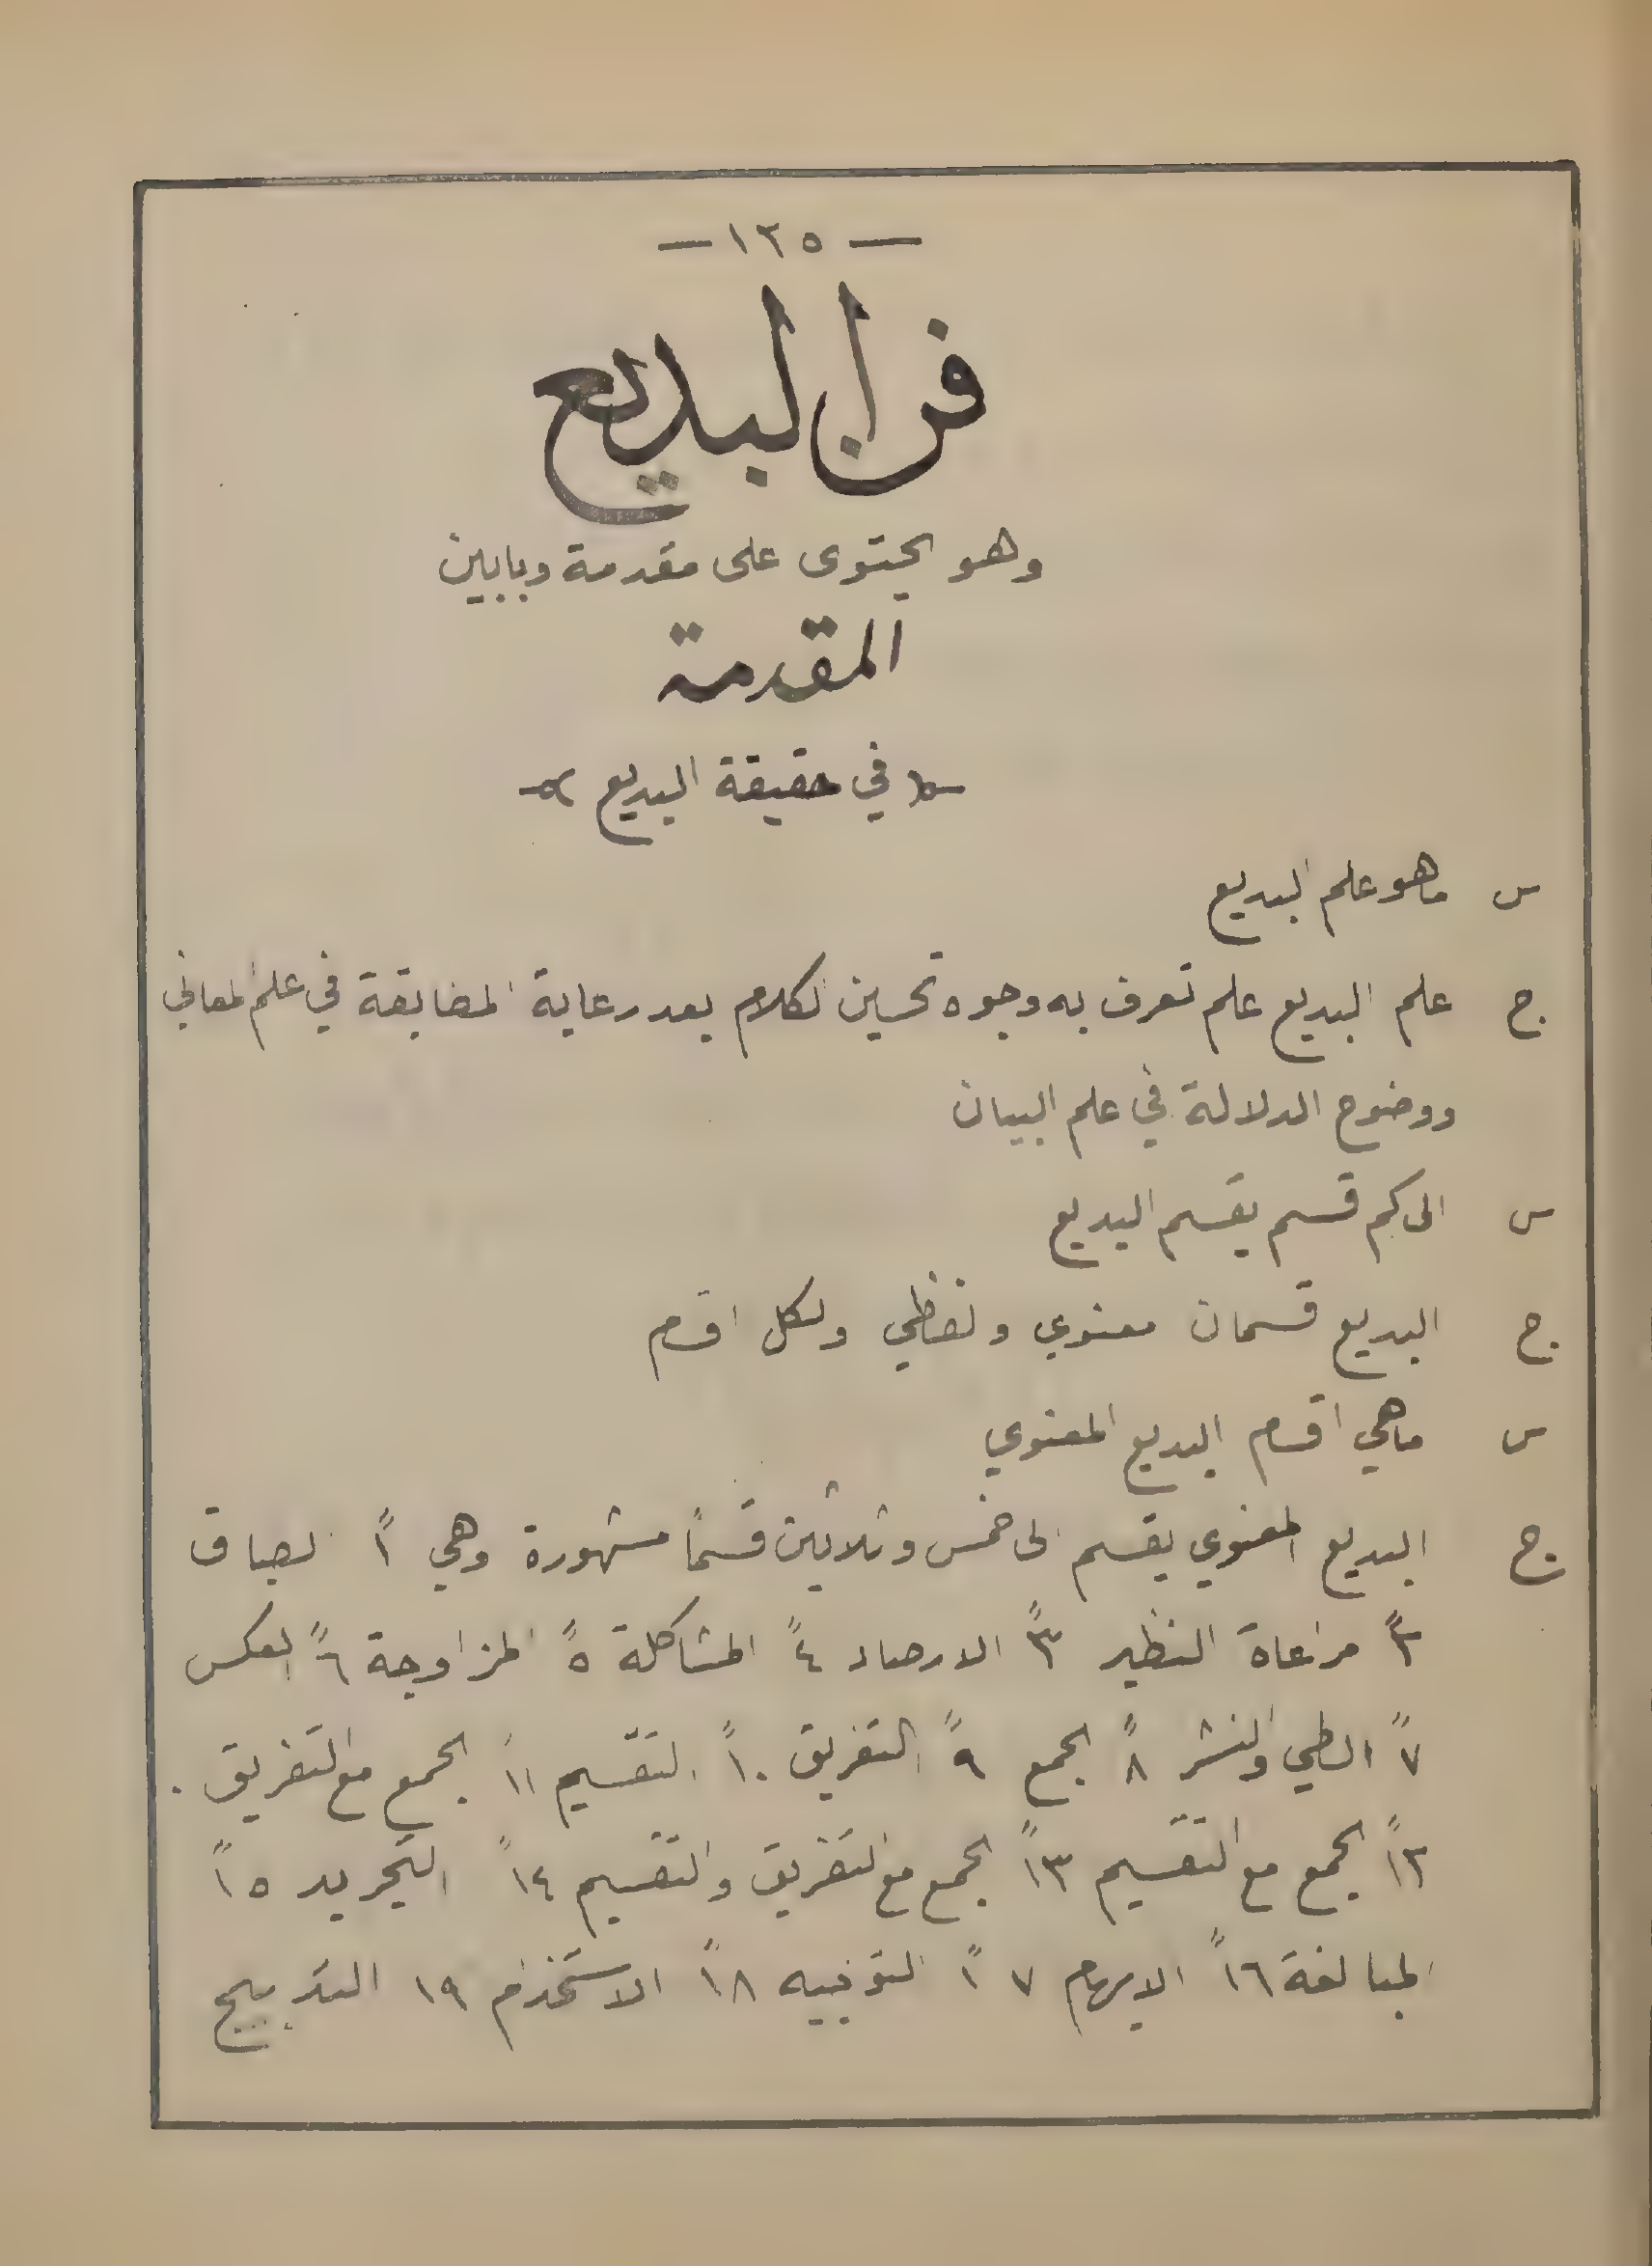 — ١٢٥ —
فن البديع
وهو يحتوى على مقدمة وبابين
المقدمة
في حقيقة البديع
س ماهو علم البديع
ج علم البديع علم تعرف به وجوه تحسين الكلام بعد رعاية المطابقة في علم المعاني
ووضوح الدلالة في علم البيان
س الى كم قسم يقسم البديع
ج البديع قسمان معنوي ولفظي ولكل اقسام
س ماهي اقسام البديع المعنوي
ج البديع المعنوي يقسم الى خمس وثلاثين قسماً مشهورة وهي ١ً الطباق
٢ً مراعاة النظير ٣ً الارصاد ٤ً المشاكلة ٥ً المزاوجة ٦ً العكس
٧ً الطي والنشر ٨ً الجمع ٩ً التفريق ١٠ً التقسيم ١١ً الجمع مع التفريق .
١٢ً الجمع مع التقسيم ١٣ً الجمع مع التفريق والتقسيم ١٤ً التجريد ١٥ً
المبالغة ١٦ً الايهام ١٧ً التوجيه ١٨ً الاستخدام ١٩ التدبيج